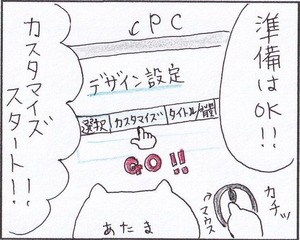 cPC
準備はOK!!
デザイン設定
選択 カスタマイズ タイトル/
GO!!
カスタマイズ
スタート!!
カチッ
マウス
あたま